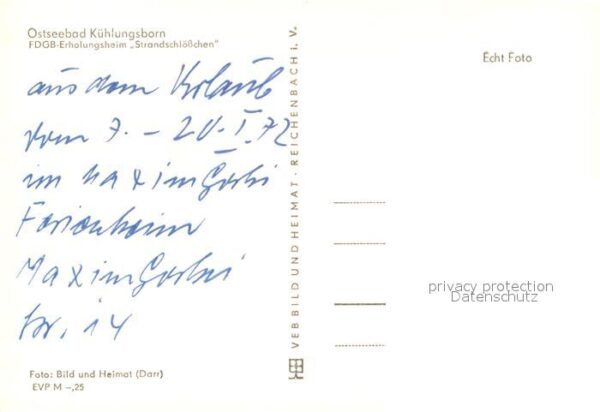 Ostseebad Kühlungsborn
FDGB-Erholungsheim „Strandschlößchen"
aus dem Urlaub
vom 7. – 20. I. 72
im Maxim Gorki
Ferienheim
Maxim Gorki
Str. 14
Foto: Bild und Heimat (Darr)
EVP M –,25
VEB BILD UND HEIMAT · REICHENBACH i. V.
Echt Foto
privacy protection
Datenschutz